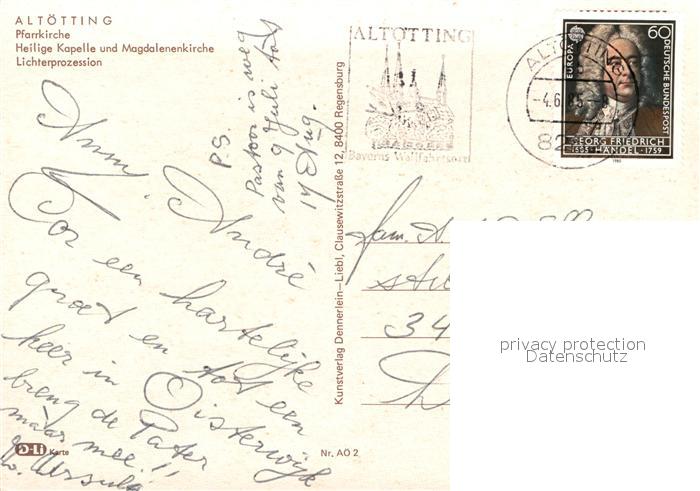 ALTÖTTING
Pfarrkirche
Heilige Kapelle und Magdalenenkirche
Lichterprozession
P.S.
Pastoor is weg
van 9 Juli tot
14 Aug.
Anny, André
Tot een hartelijke
groet en tot een
keer in Oisterwijk
breng de Pater
maar mee!!
Ursula
D-Li Karte
Nr. AÖ 2
Kunstverlag Dennerlein–Liebl, Clausewitzstraße 12, 8400 Regensburg
ALTÖTTING
Bayerns Wallfahrtsort
ALTÖTTING
-4.6.
82
EUROPA
60
DEUTSCHE BUNDESPOST
GEORG FRIEDRICH
1685 · HÄNDEL · 1759
1985
Fam. A.
34
privacy protection
Datenschutz